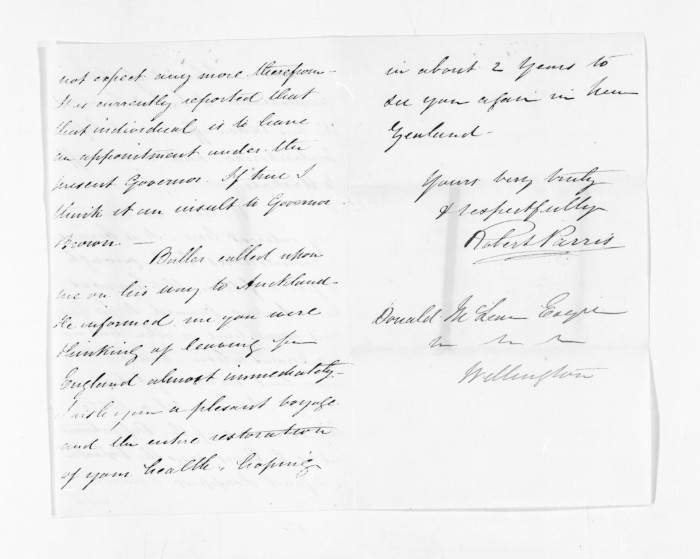 not expect any more therefrom -
It is currently reported that
that individual is to have
an appointment under the
present Governor. If true I
think it an insult to Governor
Brown. —
Buller called upon
me on his way to Auckland -
He informed me you were
thinking of leaving for
England almost immediately -
I wish you a plesant voyage
and the entire restoration
of your health, hoping
in about 2 Years to
see you again in New
Zealand -
Yours very truly
& respectfully
Robert Parris
Donald McLean Esqre
Wellington